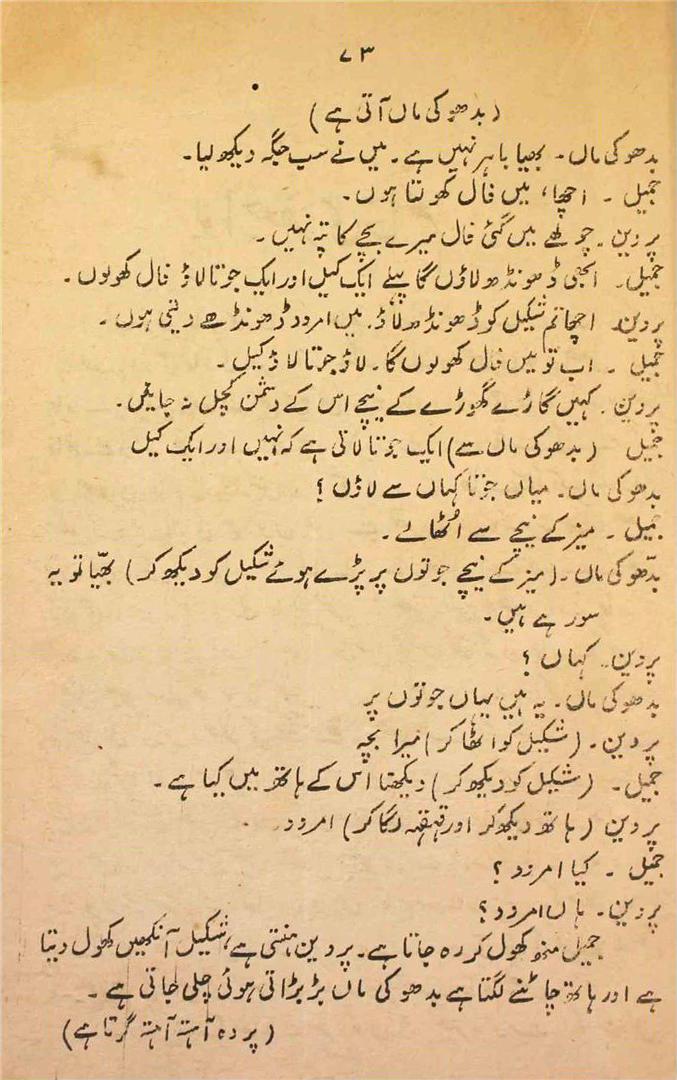 ۷۳
(بدھو کی ماں آتی ہے)
بدھو کی ماں۔ بھیا باہر نہیں ہے۔ میں نے سب جگہ دیکھ لیا۔
جمیل ۔ اچھا، میں فال کھولتا ہوں۔
پروین۔ چولھے میں گئی فال میرے بچے کا پتہ نہیں۔
جمیل۔ ابھی ڈھونڈھ لاؤں گا پہلے ایک کیل اور ایک جوتا لاؤ فال کھولوں۔
پروین۔ اچھا تم شکیل کو ڈھونڈھ لاؤ۔ میں امرود ڈھونڈھے دیتی ہوں۔
جمیل ۔ اب تو میں فال کھولوں گا۔ لاؤ جوتا لاؤ کیل۔
پروین۔ کہیں گاڑے گھوڑے کے نیچے اس کے دشمن کچل نہ جائیں۔
جمیل (بدھو کی ماں سے) ایک جوتا لاتی ہے کہ نہیں اور ایک کیل
بدھو کی ماں۔ میاں جوتا کہاں سے لاؤں؟
جمیل ۔ میز کے نیچے سے اُٹھالے۔
بدّھو کی ماں ۔ (میز کے نیچے جوتوں پر پڑے ہوئے شکیل کو دیکھ کر) بھیّا تو یہ
سو رہے ہیں۔
پروین۔ کہاں؟
بدھو کی ماں۔ یہ ہیں یہاں جوتوں پر
پروین۔ (شکیل کو اٹھا کر) میرا بچہ
جمیل۔ (شکیل کو دیکھ کر) دیکھنا اس کے ہاتھ میں کیا ہے۔
پروین (ہاتھ دیکھ کر اور قہقہہ لگا کر) امرود۔
جمیل ۔ کیا امرود؟
پروین۔ ہاں امرود؟
جمیل منھ کھول کر رہ جاتا ہے۔ پروین ہنستی ہے، شکیل آنکھیں کھول دیتا
ہے اور ہاتھ چاٹنے لگتا ہے بدھو کی ماں بڑبڑاتی ہوئی چلی جاتی ہے۔
(پردہ آہستہ آہستہ گرتا ہے)